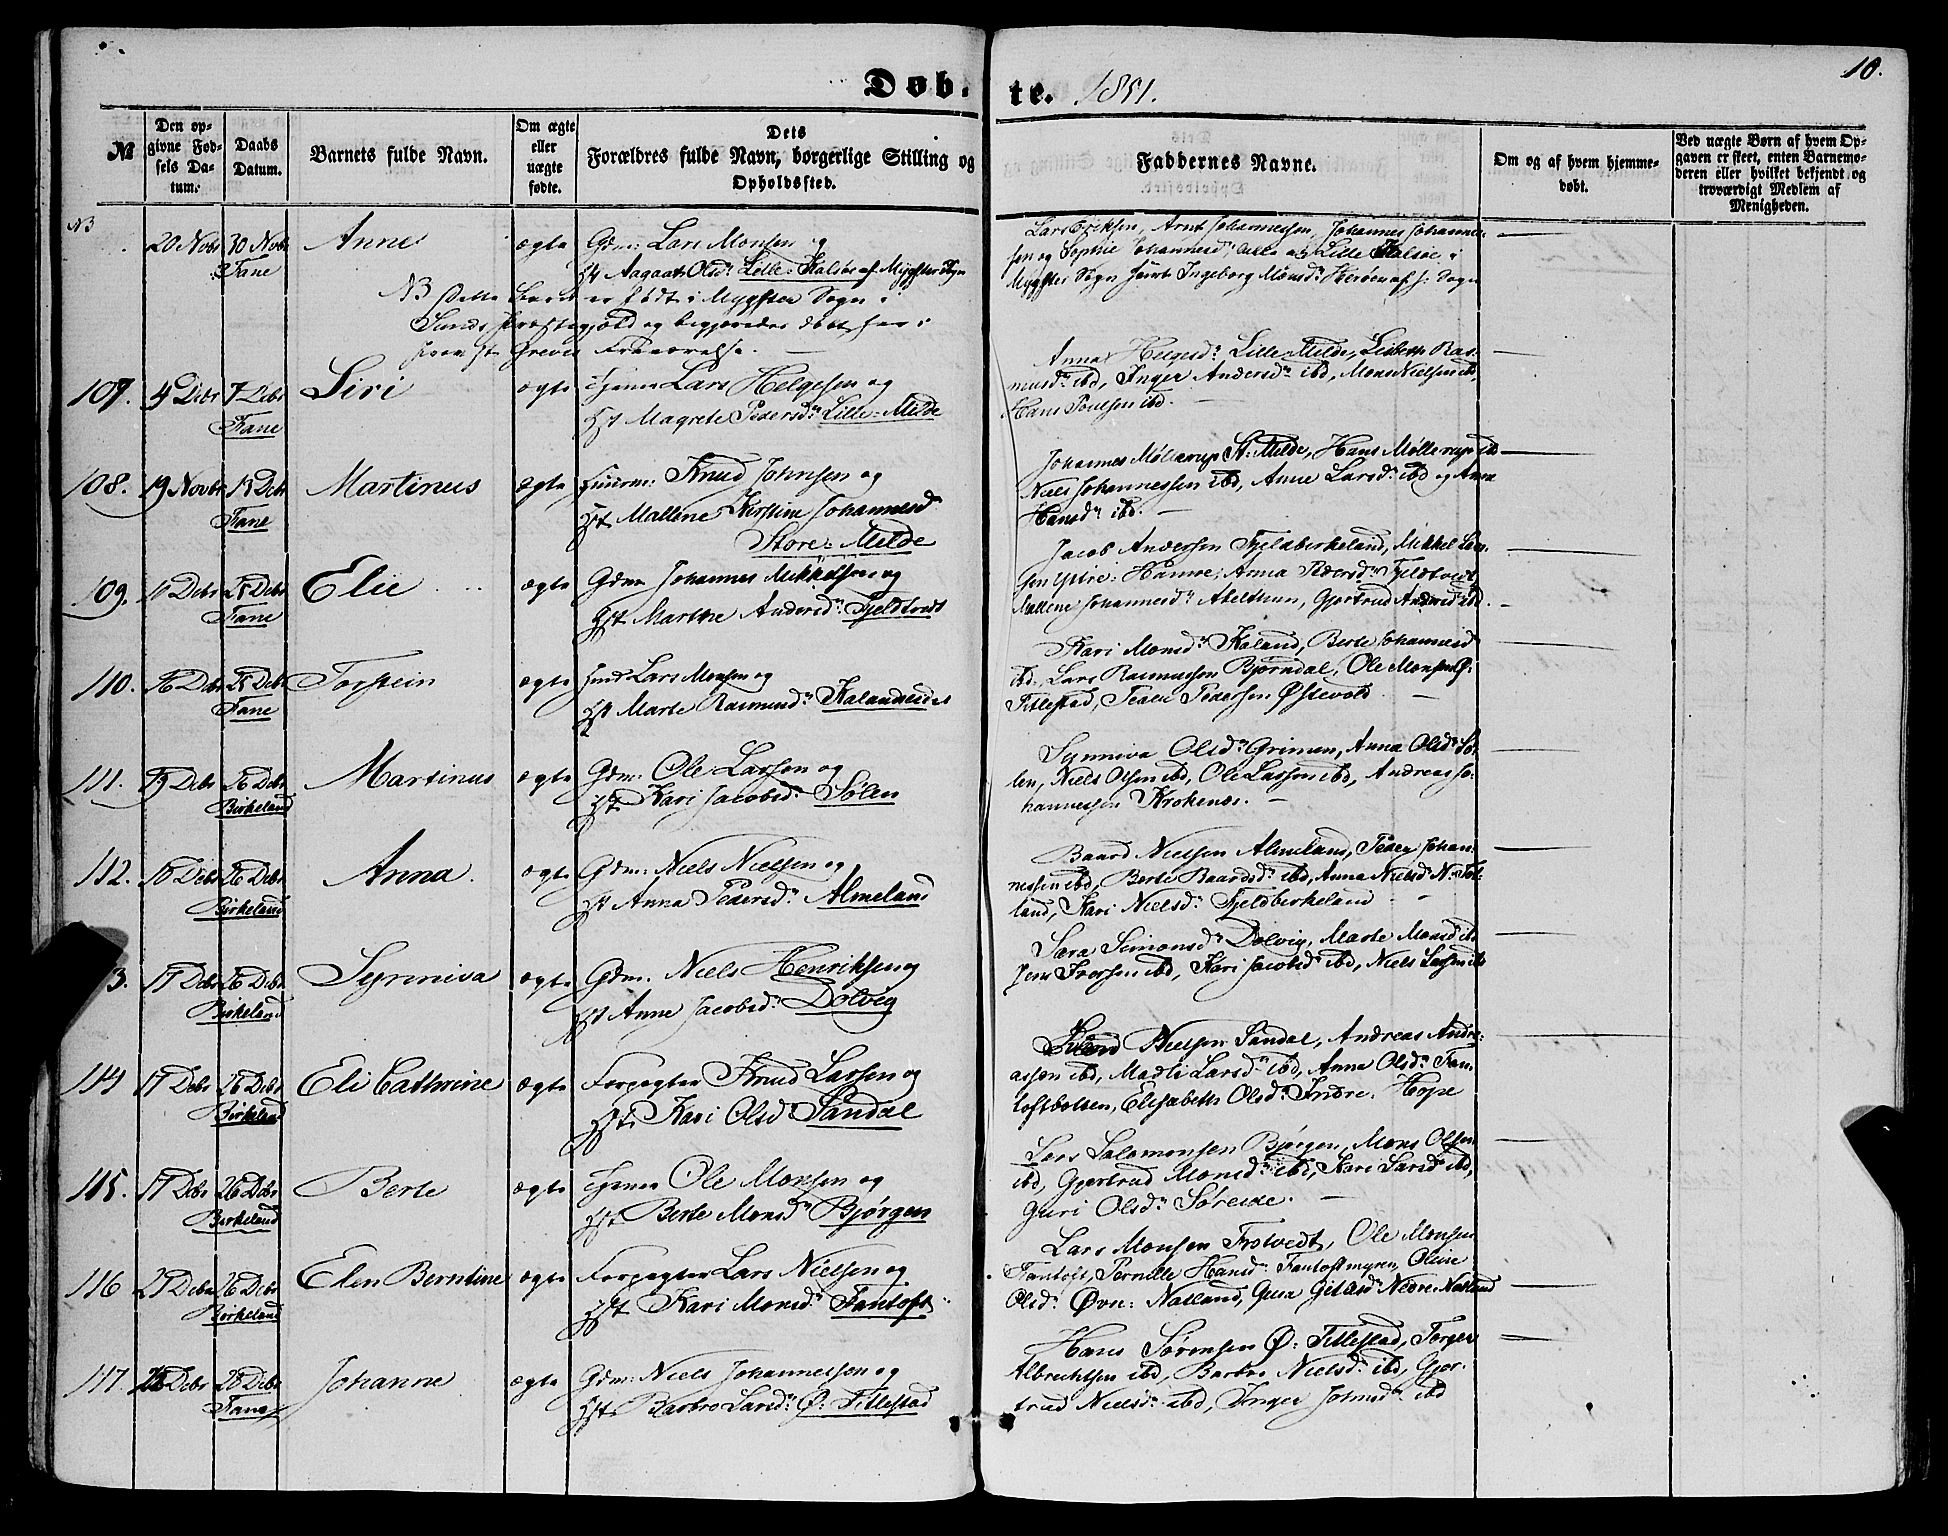 Døbte. 1851.
10.
№
Den opgivne Fødsels Datum.
Daabs Datum.
Barnets fulde Navn.
Om ægte eller uægte fødte.
Dets Forældres fulde Navn, borgerlige Stilling og Opholdssted.
Faddernes Navne.
Om og af hvem hjemmedøbt.
Ved uægte Børn af hvem Opgaven er skeet, enten Barnemoderen eller hvilket bekjendt og troværdigt Medlem af Menigheden.
NB 20 Novbr 30 Novbr Fane Anne ægte Gdm: Lars Monsen og
Hst Aagaat Olsdr Lille-Kalsøe af Mygster Sogn
NB Dette Barn er født i Mygster Sogn i
Sunds Præstegjeld og begjæredes døbt her i
Fraværelse.
Lars Eriksen, Arnt Johannessen, Johannes Johannes-
sen og Sophie Johannesdr, alle af Lille Kalsøe i
Mygster Sogn samt Ingeborg Monsdr af h: Sogn
107. 4 Debr 7 Debr Fane Siri ægte Lars Helgesen og
Hst Magrete Pedersdr Lille-Milde
Anna Helgesdr Lille Milde, Lisbeth Ras-
musdr ibd, Inger Andersdr ibd, Mons Nielsen ibd,
Hans Poulsen ibd.
108. 19 Novbr 15 Debr Fane Martinus ægte Knud Johnsen og
Hst Mallene Kirstine Johannesd
Store-Milde
Johannes Møllerup St: Milde, Hans Møllerup ibd
Niels Johannessen ibd, Anne Larsdr ibd og Anna
Hansdr ibd.
109. 10 Debr 25 Debr Fane Elie ægte Gdm Johannes Mikkelsen og
Hst Marthe Andersdr Fjeldtvedt
Jacob Andersen Fjeldbirkeland, Mikkel Lar-
sen Hamre, Anna Pedersdr Fjeldtvedt,
Mallene Johannesdr Abelthun, Gjertrud Andersd ibd.
110. 16 Debr 25 Debr Fane Torstein ægte Lars Monsen og
Hst Marte Rasmusdr Kalandseidet
Kari Monsdr Kaland, Berte Johannesd
ibd, Lars Rasmussen Bjørndal, Ole Monsen Ø:
Titlestad, Peder Pedersen Østevold.
111. 19 Debr 26 Debr Birkeland Martinus ægte Gdm: Ole Larsen og
Hst Kari Jacobsdr Sølen
Synneva Olsdr Grimen, Anna Olsdr Sø-
len, Niels Olsen ibd, Ole Larsen ibd, Andreas Jo-
hannessen Krokenæs.
112. 16 Debr 26 Debr Birkeland Anna ægte Gdm: Niels Nielsen og
Hst Anna Pedersdr Almeland
Baard Nielsen Almeland, Peder Johan-
nessen ibd, Berte Baardsdr ibd, Anna Nielsd N:
land, Kari Nielsdr Fjeldbirkeland
3. 17 Debr 26 Debr Birkeland Synneva ægte Gdm. Niels Henriksen og
Hst Anne Jacobsdr Dolvig
Sara Simonsdr Dolvig, Marte Monsd ibd
Jens Iversen ibd, Kari Jacobsd ibd, Niels Larsen ibd
114 17 Debr 26 Debr Birkeland Eli Cathrine ægte Forpagter Knud Larsen og
Hst Kari Olsdr Sandal
Nielsen Sandal, Andreas Andre-
assen ibd, Madli Larsdr ibd, Anna Olsdr Fan-
toftbolten, Elisabeth Olsdr Indre. Hope
115. 17 Debr 26 Debr Birkeland Berte ægte Ole Monsen og
Hst Berte Monsdr Bjørgen
Lars Salomonsen Bjørgen, Mons Olsen
ibd, Gjertrud Monsdr ibd, Kari Larsdr ibd,
Guri Olsdr Søreide.
116 21 Debr 26 Debr Birkeland Elen Berntine ægte Forpagter Lars Nielsen og
Hst Kari Monsdr Fantoft
Lars Monsen Trotvedt, Ole Monsen
Fantoft, Pernille Hansd Fantoftmyren, Oline
Olsdr Øvre: Natland, Nedre Natland
117. 25 Debr 28 Debr Fane Johanne ægte Gdm: Niels Johannessen og
Hst Barbro Larsdr Ø: Titlestad
Hans Sørensen Ø: Titlestad, Torger
Albrechtsen ibd, Barbro Nielsdr ibd, Gjer-
trud Nielsdr ibd, Inger Johnsdr ibd